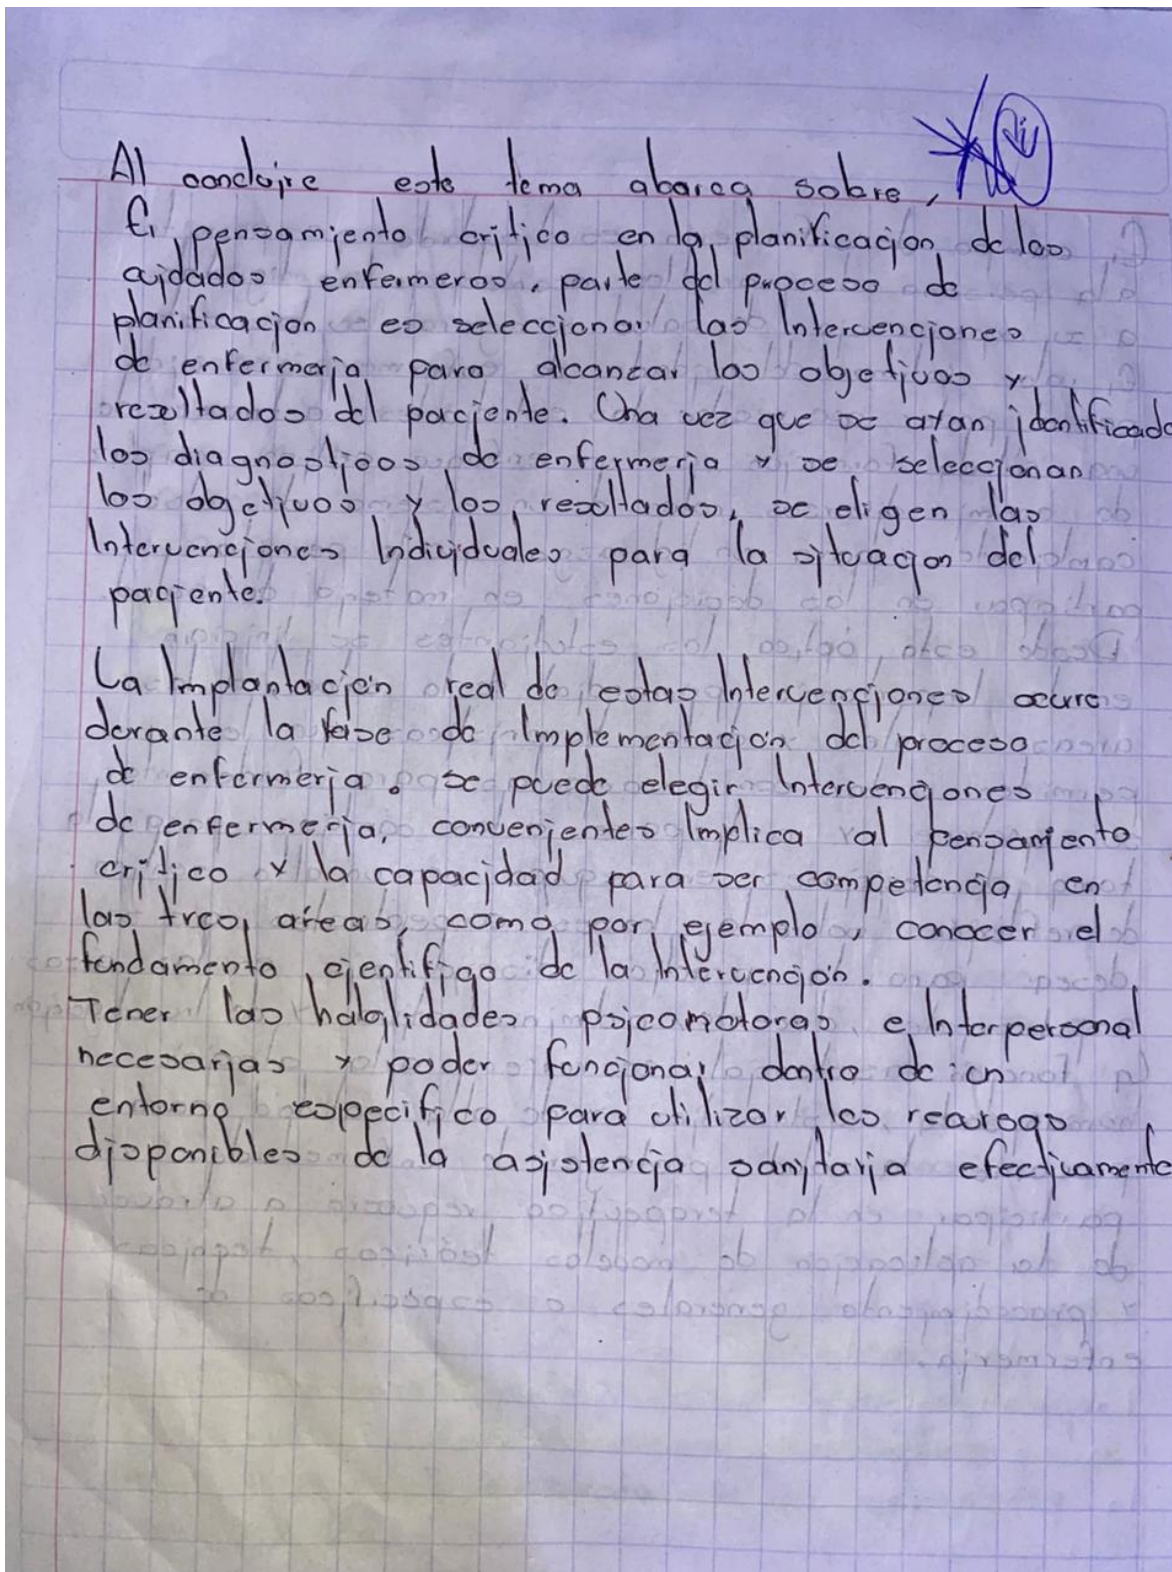 Al concluire este tema abarca sobre,
El pensamiento critico en la planificacion de los
cuidados enfermeros, parte del proceso de
planificacion es seleccionar las Intervenciones
de enfermeria para alcanzar los objetivos y
resultados del paciente. Una vez que se ayan identificado
los diagnosticos de enfermeria y se seleccionan
los objetivos y los resultados, se eligen las
Intervenciones Individuales para la situacion del
paciente.
La Implantación real de estas Intervenciones ocure
durante la fase de Implementación del proceso
de enfermeria. se puede elegir Intervenciones
de enfermería, convenientes Implica al pensamiento
critico y la capacidad para ser competencia en
las tres areas, como por ejemplo, conocer el
fundamento cientifico de la Intervención.
Tener las habilidades psicomotoras e Interpersonal
necesarias y poder funcionar dentro de un
entorno especifico para utilizar los recursos
disponibles de la asistencia sanitaria efectivamente